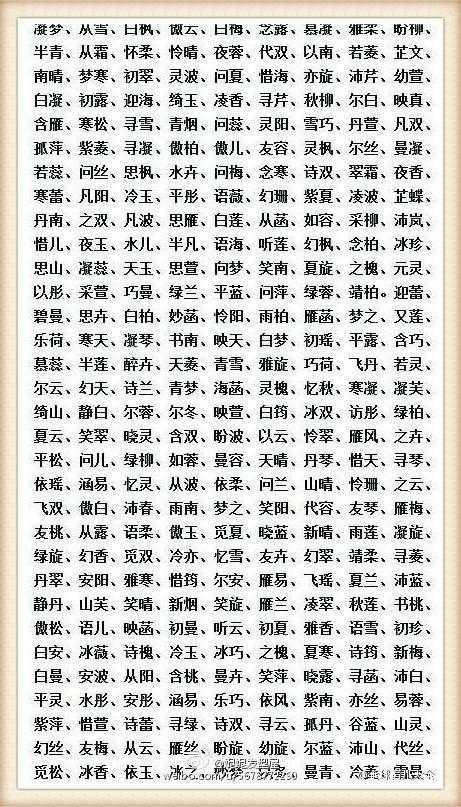 凝梦、从雪、白枫、傲云、白梅、念露、慕凝、雅柔、盼柳、
半青、从霜、怀柔、怜晴、夜蓉、代双、以南、若菱、芷文、
南晴、梦寒、初翠、灵波、问夏、惜海、亦旋、沛芹、幼萱、
白凝、初露、迎海、绮玉、凌香、寻芹、秋柳、尔白、映真、
含雁、寒松、寻雪、青烟、问蕊、灵阳、雪巧、丹萱、凡双、
孤萍、紫菱、寻凝、傲柏、傲儿、友容、灵枫、尔丝、曼凝、
若蕊、问丝、思枫、水卉、问梅、念寒、诗双、翠霜、夜香、
寒蕾、凡阳、冷玉、平彤、语薇、幻珊、紫夏、凌波、芷蝶、
丹南、之双、凡波、思雁、白莲、从菡、如容、采柳、沛岚、
惜儿、夜玉、水儿、半凡、语海、听莲、幻枫、念柏、冰珍、
思山、凝蕊、天玉、思萱、向梦、笑南、夏旋、之槐、元灵、
以彤、采萱、巧曼、绿兰、平蓝、问萍、绿蓉、靖柏。迎蕾、
碧曼、思卉、白柏、妙菡、怜阳、雨柏、雁菡、梦之、又莲、
乐荷、寒天、凝琴、书南、映天、白梦、初瑶、平露、含巧、
慕蕊、半莲、醉卉、天菱、青雪、雅旋、巧荷、飞丹、若灵、
尔云、幻天、诗兰、青梦、海菡、灵槐、忆秋、寒凝、凝芙、
绮山、静白、尔蓉、尔冬、映萱、白筠、冰双、访彤、绿柏、
夏云、笑翠、晓灵、含双、盼波、以云、怜翠、雁风、之卉、
平松、问儿、绿柳、如蓉、曼容、天晴、丹琴、惜天、寻琴、
依瑶、涵易、忆灵、从波、依柔、问兰、山晴、怜珊、之云、
飞双、傲白、沛春、雨南、梦之、笑阳、代容、友琴、雁梅、
友桃、从露、语柔、傲玉、觅夏、晓蓝、新晴、雨莲、凝旋、
绿旋、幻香、觅双、冷亦、忆雪、友卉、幻翠、靖柔、寻菱、
丹翠、安阳、雅寒、惜筠、尔安、雁易、飞瑶、夏兰、沛蓝、
静丹、山芙、笑晴、新烟、笑旋、雁兰、凌翠、秋莲、书桃、
傲松、语儿、映菡、初曼、听云、初夏、雅香、语雪、初珍、
白安、冰薇、诗槐、冷玉、冰巧、之槐、夏寒、诗筠、新梅、
白曼、安波、从阳、含桃、曼卉、笑萍、晓露、寻菡、沛白、
平灵、水彤、安彤、涵易、乐巧、依风、紫南、亦丝、易蓉、
紫萍、惜萱、诗蕾、寻绿、诗双、寻云、孤丹、谷蓝、山灵、
幻丝、友梅、从云、雁丝、盼旋、幼旋、尔蓝、沛山、代丝、
觅松、冰香、依玉、冰之、妙梦、曼青、冷菱、雪曼、